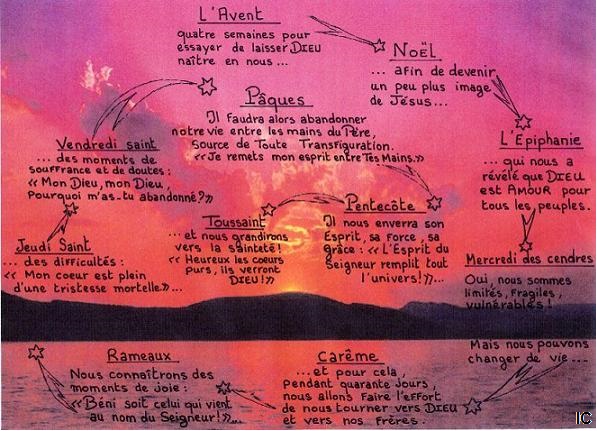 L'Avent
quatre semaines pour
essayer de laisser DIEU
naître en nous ...
NOËL
... afin de devenir
un peu plus image
de Jésus...
L'Epiphanie
... qui nous a
révélé que DIEU
est AMOUR pour
tous les peuples.
Mercredi des cendres
Oui, nous sommes
limités, fragiles,
vulnérables!
Mais nous pouvons
changer de vie ...
Carême
...et pour cela,
Pendant quarante jours,
nous allons faire l'effort
de nous tourner vers DIEU
et vers nos frères.
Rameaux
Nous connaîtrons des
moments de joie:
« Béni soit celui qui vient
au nom du Seigneur!»...
Jeudi Saint
... des difficultés:
« Mon coeur est plein
d'une tristesse mortelle»...
Vendredi saint
... des moments de
souffrance et de doutes:
« Mon Dieu, mon Dieu,
Pourquoi m'as-tu abandonné?»
Pâques
Il faudra alors abandonner
notre vie entre les mains du Père,
Source de Toute Transfiguration.
«Je remets mon esprit entre Tes Mains.»
Pentecôte
Il nous enverra son
Esprit, sa force, sa
grâce: «L'Esprit du
Seigneur remplit tout
l'univers!»...
Toussaint
... et nous grandirons
vers la sainteté!
« Heureux les coeurs
purs, ils verront
DIEU!»
IC